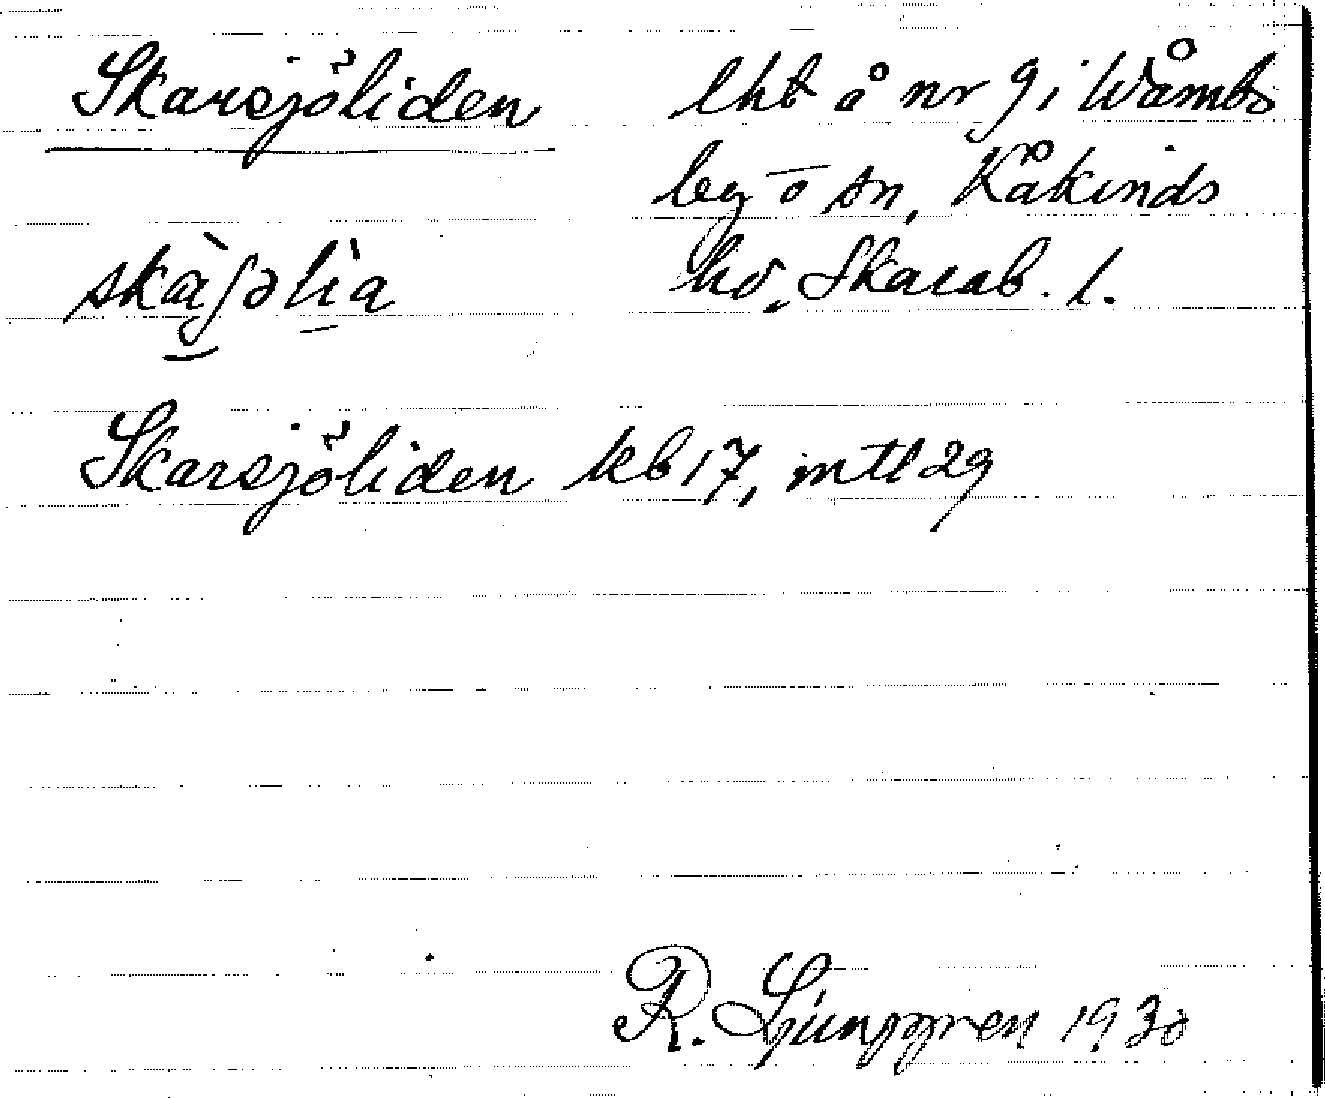 Skarsjöliden lht å nr 9 i Wåmbs
by o sn, Kåkinds
hd, Skarab. l.
Skarsjöliden kb 17, mtl 29
R. Ljunggren 1930